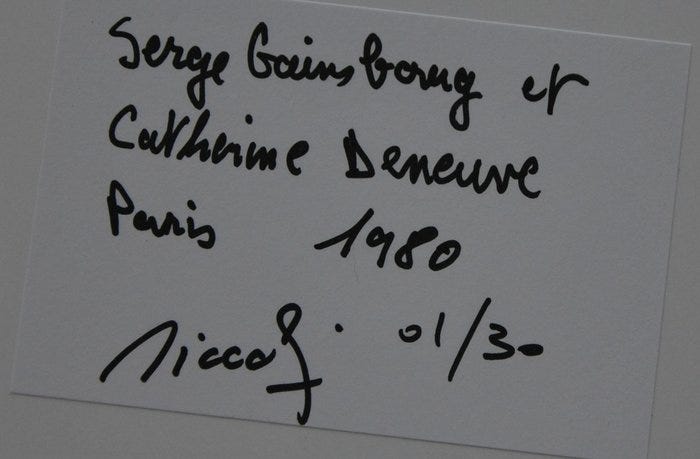 Serge Gainsbourg et
Catherine Deneuve
Paris 1980
01/30